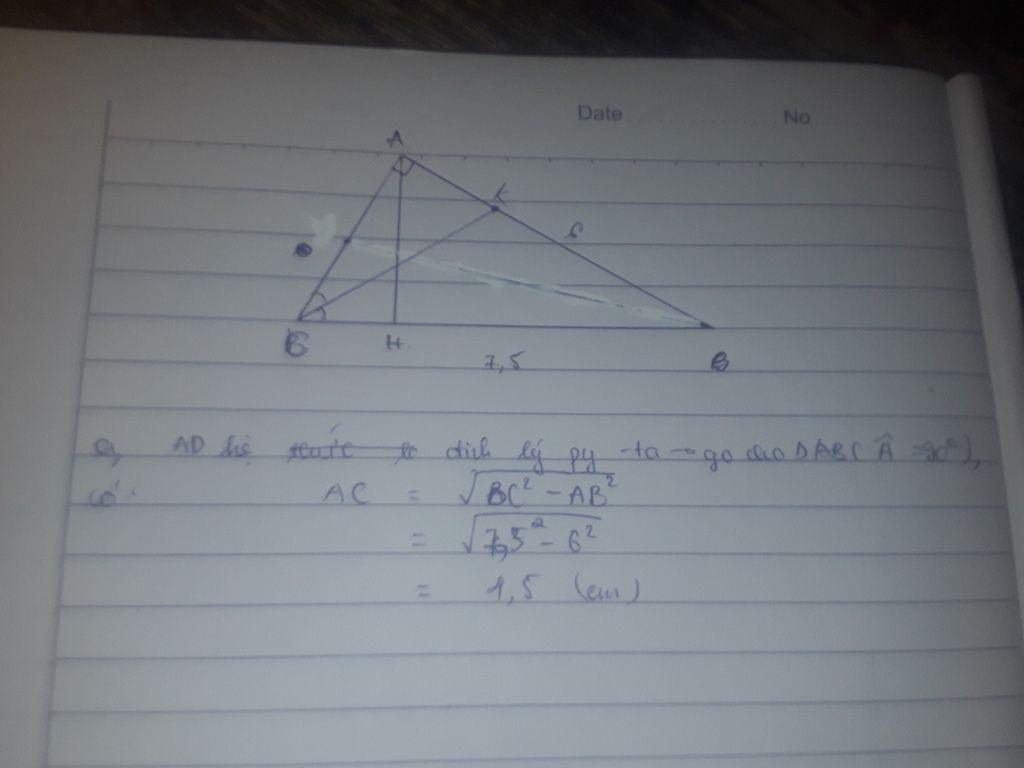 Date No
A
K
6
C H B
7,5
a, AD hệ thức định lý py-ta-go cho ΔABC (Â = 90°),
có: AC = √BC² - AB²
= √7,5² - 6²
= 1,5 (cm)